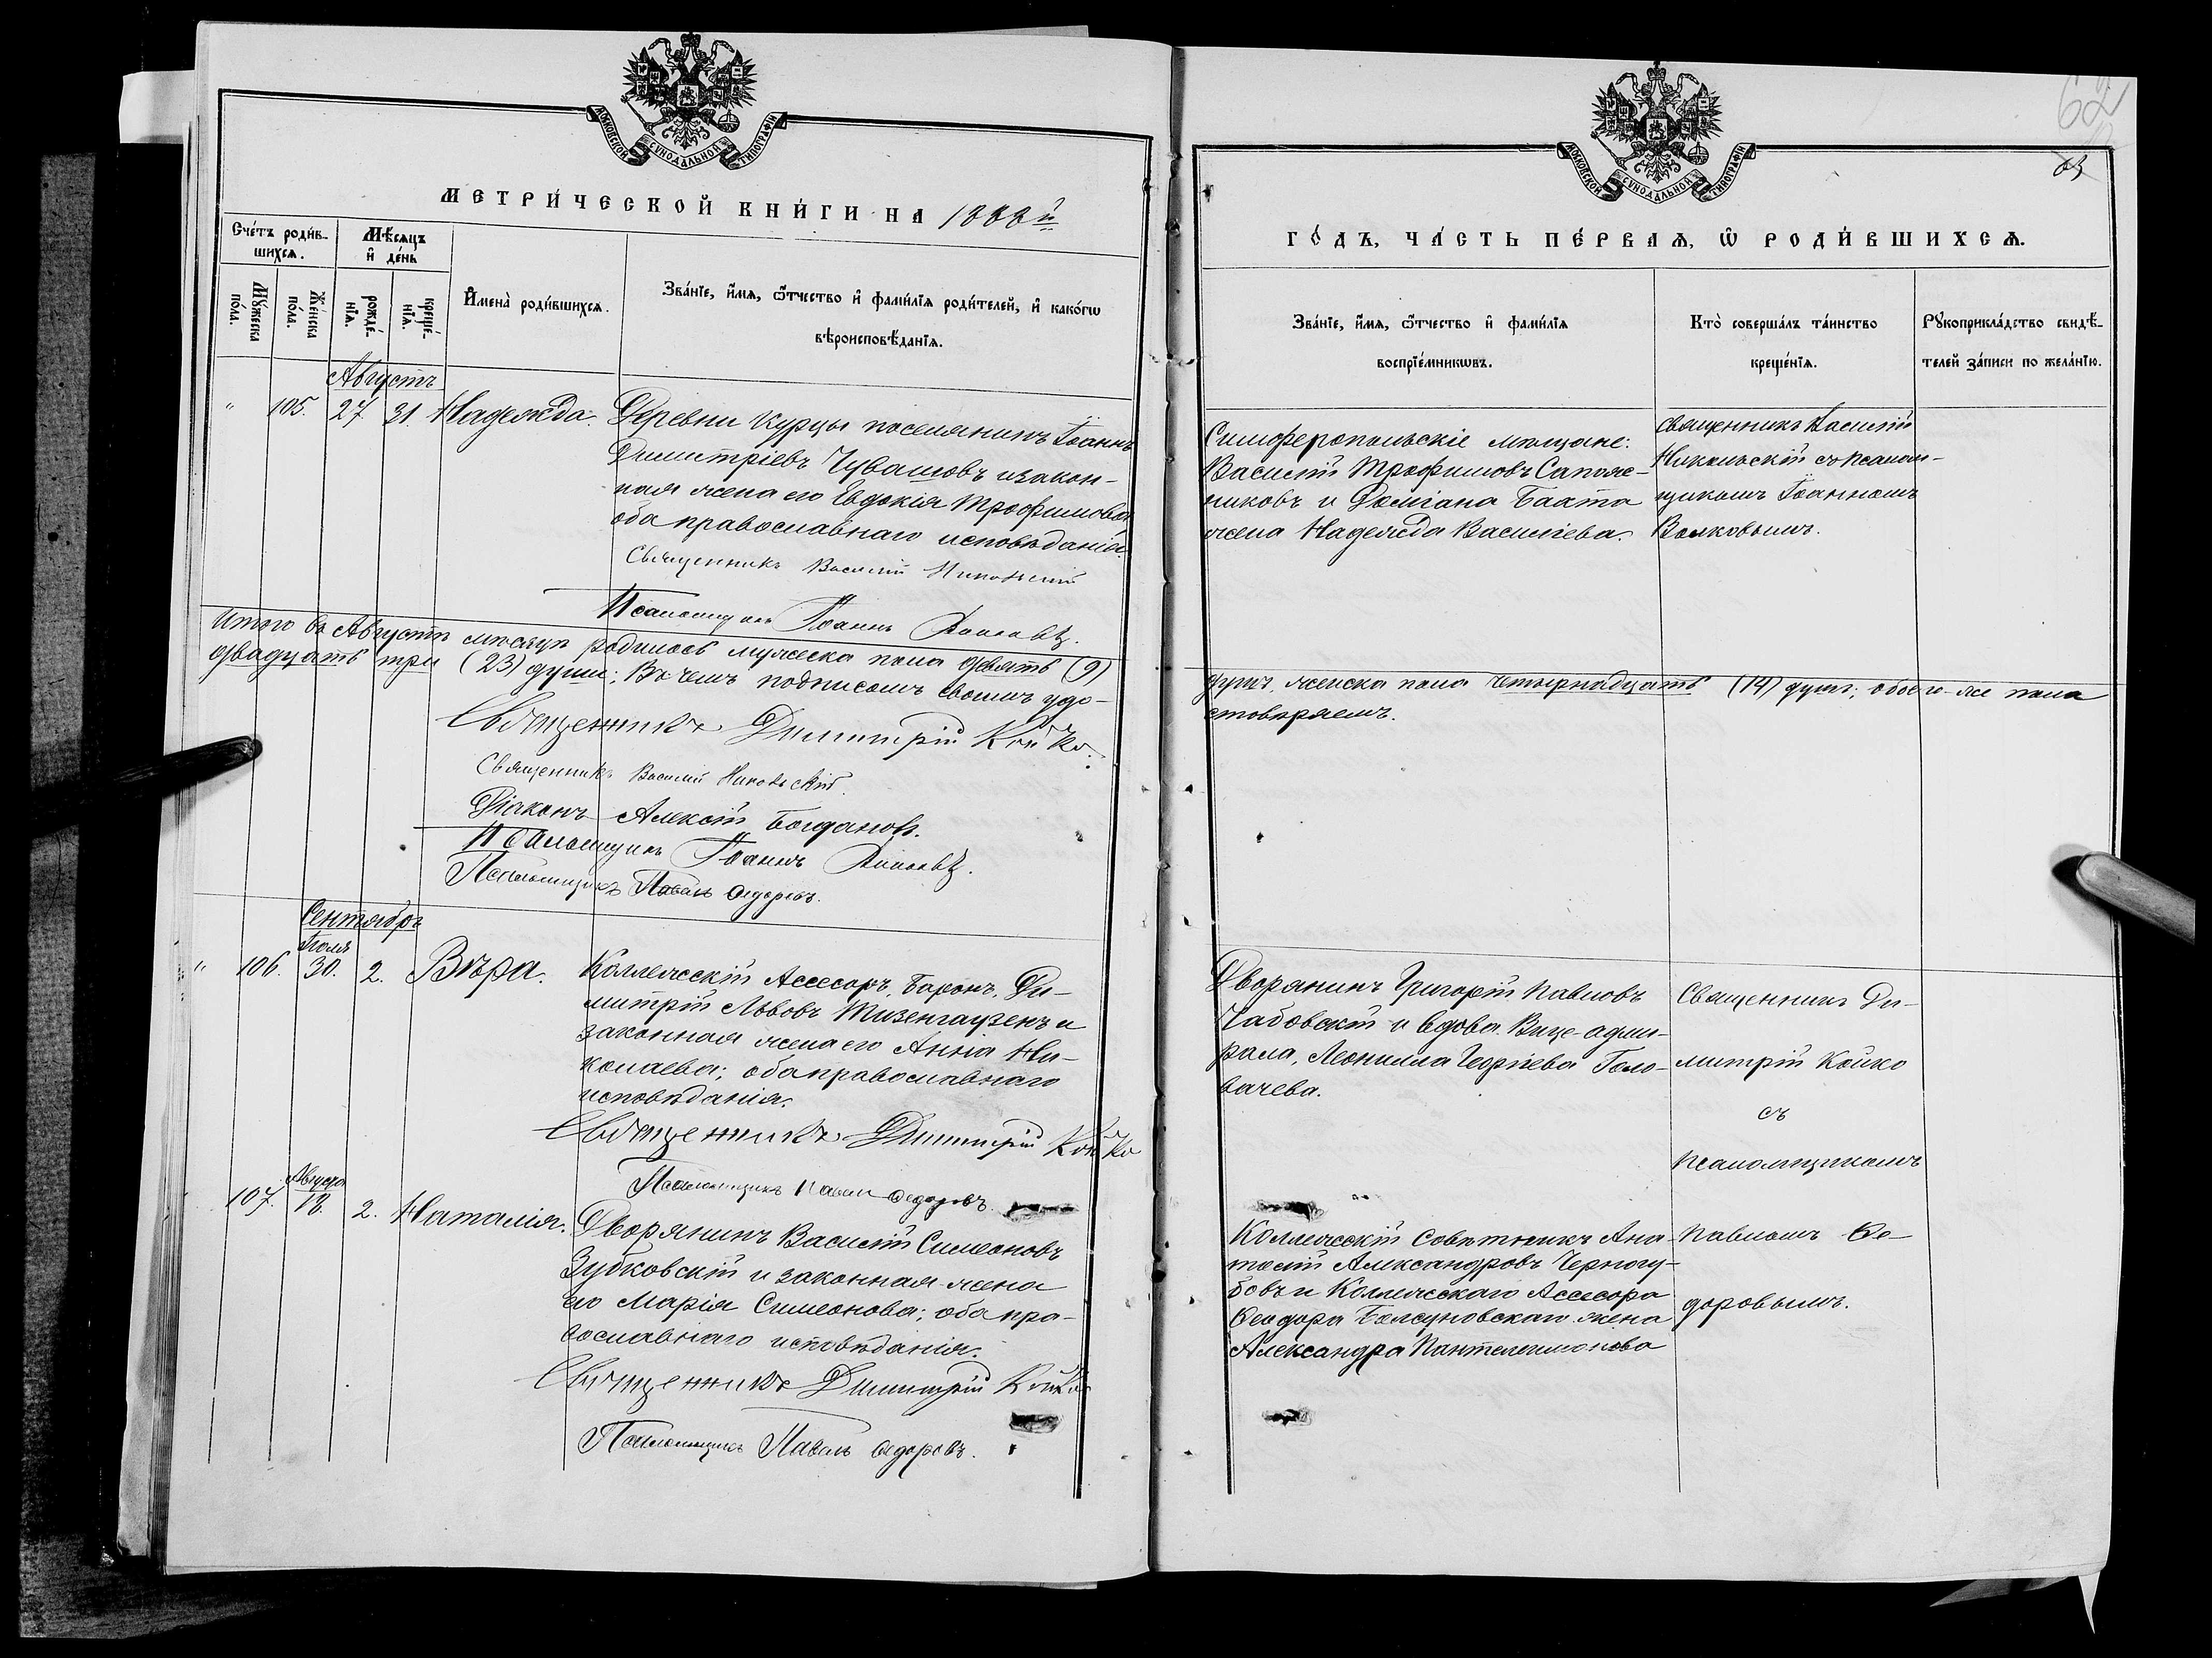 МОСКОВСКОЙ СѴНОДАЛЬНОЙ ТИПОГРАФІИ
МЕТРИ́ЧЕСКОЙ КНИ́ГИ НА 1888 й
Сче́тъ роди́в-
шихсѧ.
Мѣ́сѧцъ
и҆ де́нь
Мꙋ́жеска
по́ла.
Же́нска
по́ла.
рожде́-
нїѧ.
креще́-
нїѧ.
И҆мена̀ роди́вшихсѧ.
Зва́нїе, и҆́мѧ, ѻ҆́тчество и҆ фами́лїѧ роди́телей, и҆ како́гѡ
вѣроисповѣ́данїѧ.
Августъ
" 105. 27. 31. Надежда.
Деревни Курцы поселянинъ Іоаннъ
Димитріевъ Чувашовъ и закон-
ная жена его Евдокія Трофимова
оба православнаго исповѣданія.
Священникъ Василій Никольскій
Псаломщикъ Іоаннъ Волковъ.
Итого въ Августѣ мѣсяцѣ родилось мужеска пола девять (9)
двадцать три (23) души; Въ чемъ подписомъ своимъ удо-
Священникъ Димитрій Койко.
Священникъ Василій Никольскій.
Діаконъ Алексій Богдановъ.
Псаломщикъ Іоаннъ Волковъ.
Псаломщикъ Павелъ Ѳедоровъ.
Сентябрь
Іюля
" 106. 30. 2. Вѣра.
Коллежскій Ассесоръ, Баронъ, Ди-
митрій Львовъ Тизенгаузенъ и
законная жена его Анна Ни-
колаева; оба православнаго
исповѣданія.
Священникъ Димитрій Койко
Псаломщикъ Павелъ Ѳедоровъ
Августа
107. 18. 2. Наталія.
Дворянинъ Василій Симеоновъ
Зубковскій и законная жена
его Марія Симеонова; оба пра-
вославнаго исповѣданія.
Священникъ Димитрій Койко
Псаломщикъ Павелъ Ѳедоровъ.
62
МОСКОВСКОЙ СѴНОДАЛЬНОЙ ТИПОГРАФІИ
ГО́ДЪ, ЧА́СТЬ ПЕ́РВАѦ, Ѽ РОДИ́ВШИХСѦ.
Зва́нїе, и҆́мѧ, ѻ҆́тчество и҆ фами́лїѧ
воспрїе́мникѡвъ.
Кто̀ соверша́лъ та́инство
креще́нїѧ.
Рꙋкоприкла́дство свидѣ́-
телей за́писи по жела́нїю.
Симферопольскіе мѣщане:
Василій Трофимовъ Сапож-
никовъ и Даміана Бахта
жена Надежда Василіева.
Священникъ Василій
Никольскій съ Псалом-
щикомъ Іоанномъ
Волковымъ.
душъ, женска пола четырнадцать (14) душъ; обоего же пола
стовѣряемъ.
Дворянинъ Григорій Павловъ
Чабовскій и вдова Вице-адми-
рала, Леонилла Георгіева Голо-
вачева.
Священникъ Ди-
митрій Койко
съ
Псаломщикомъ
Павломъ Ѳе-
доровымъ.
Коллежскій Совѣтникъ Ана-
толій Александровъ Черногу-
бовъ и Коллежскаго Ассесора
Ѳеодора Балсуновскаго жена
Александра Пантелеимонова